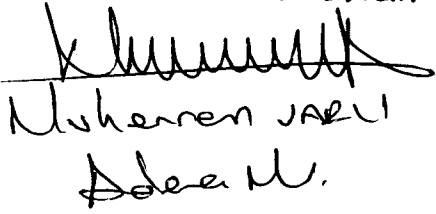 Muharrem VARLI
Adana M.